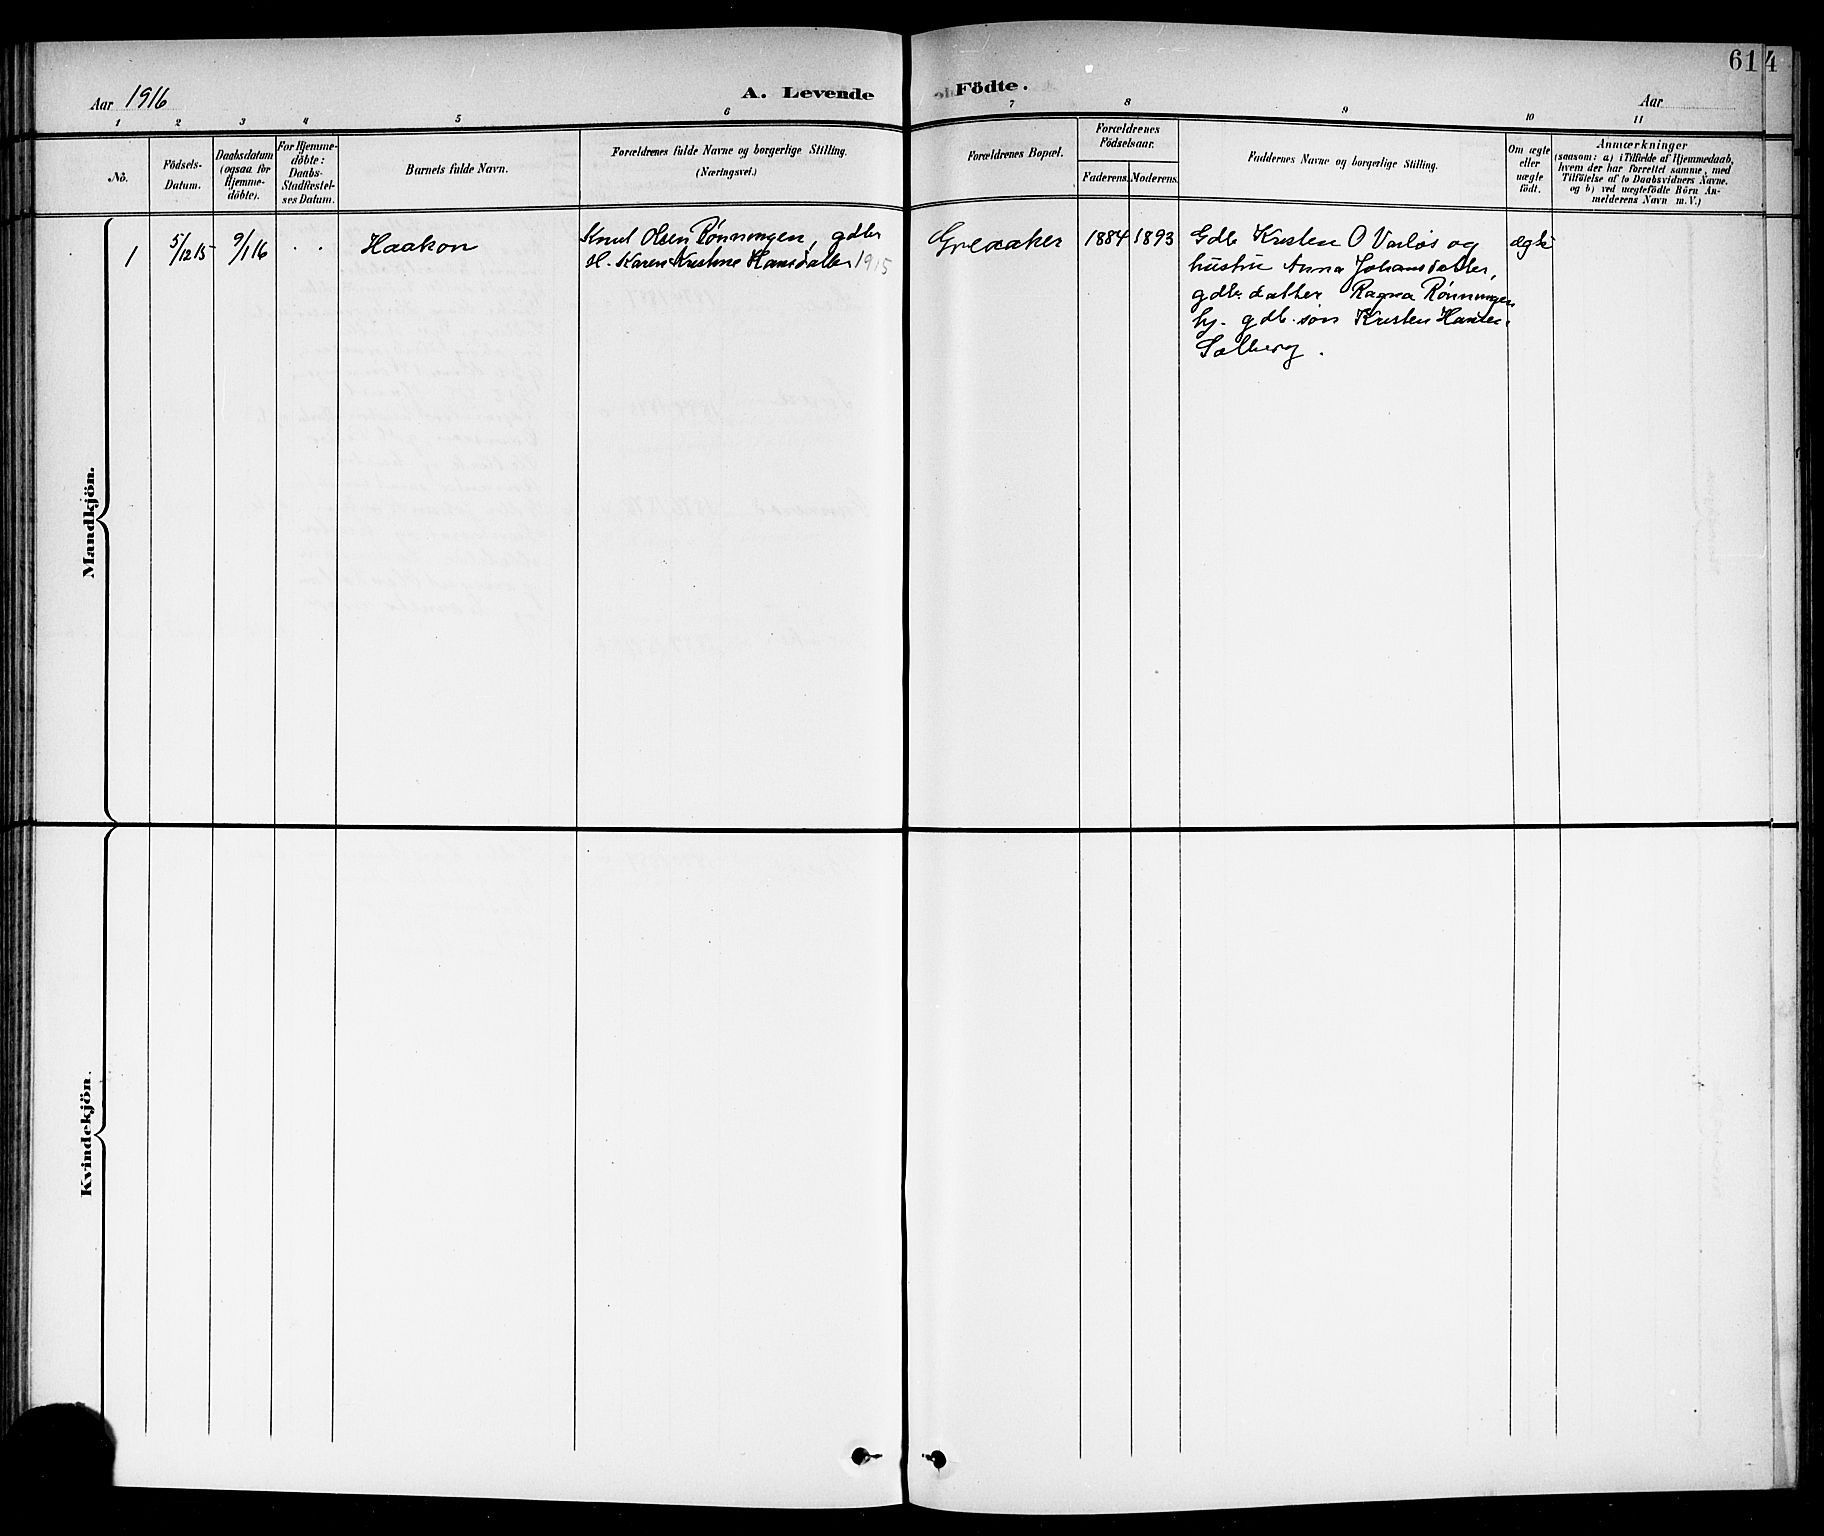 614
Aar 1916
A. Levende
Födte.
Aar
1 2 3 4 5 6 7 8 9 10 11
No.
Födsels-
Datum.
Daabsdatum
(ogsaa for
Hjemme-
döbte).
For Hjemme-
döbte:
Daabs-
Stadfæstel-
ses Datum.
Barnets fulde Navn.
Forældrenes fulde Navne og borgerlige Stilling.
(Næringsvei.)
Forældrenes Bopæl.
Forældrenes
Födselsaar.
Faderens.
Moderens.
Faddernes Navne og borgerlige Stilling.
Om ægte
eller
uægte
födt.
Anmærkninger
(saasom: a) i Tilfælde af Hjemmedaab,
hvem der har forrettet samme, med
Tilföielse af to Daabsvidners Navne.
og b) ved uægtefödte Börn An-
melderens Navn m. V.)
Mandkjön.
1
5/12 15
9/1 16
. .
Haakon
Knut Olsen Rönningen, gdbr
H. Karen Kristine Hansdatter 1915
Grexaker
1884
1893
Gdb Kristen O Varlös og
hustru Anna Johansdatter,
gdbr. datter Ragna Rönningen
hj. gdb. sön Kristen Hansen
Solberg.
ægte
Kvindekjön.